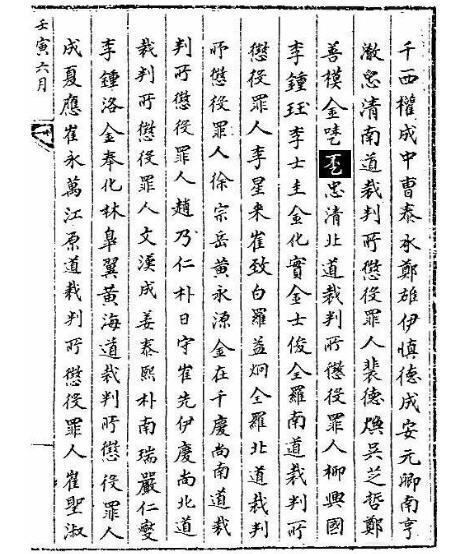 千西權成中曹泰永鄭雄伊慎德成安元卿南亨
澈忠清南道裁判所懲役罪人裴德煥吳芝哲鄭
善模金忠清北道裁判所懲役罪人柳興國
李鍾珏李士圭金化實金士俊全羅南道裁判所
懲役罪人李星來崔致白羅益炯全羅北道裁判
所懲役罪人徐宗岳黃永源金在千慶尚南道裁
判所懲役罪人趙乃仁朴日守崔先伊慶尚北道
裁判所懲役罪人文漢成姜泰熙朴南瑞嚴仁燮
李鍾洛金奉化林皐翼黃海道裁判所懲役罪人
成夏應崔永萬江原道裁判所懲役罪人崔聖淑
壬寅六月